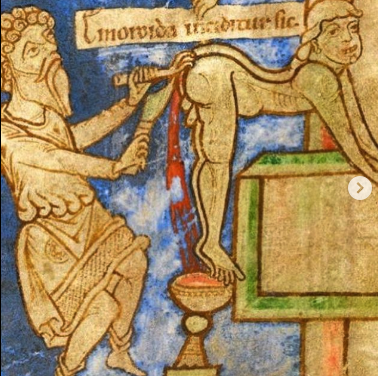 Emoroida inciditur sic.